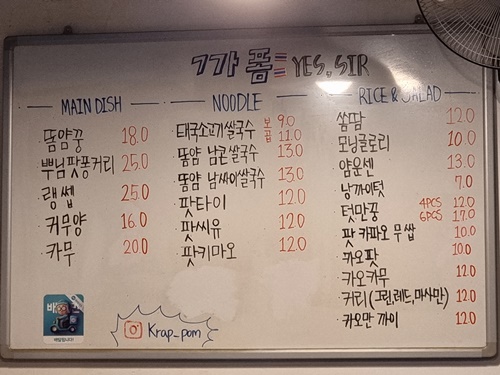 ㄱ가 폼 YES, SIR
MAIN DISH
똠얌꿍 18.0
뿌님팟퐁커리 25.0
랭쎕 25.0
커무양 16.0
카무 20.0
NOODLE
태국소고기쌀국수 보 9.0 곱 11.0
똠얌 남콘쌀국수 13.0
똠얌 남싸이쌀국수 13.0
팟타이 12.0
팟씨유 12.0
팟키마오 12.0
RICE & SALAD
쏨땀 12.0
모닝글로리 10.0
얌운센 13.0
낭까이텃 7.0
텃만꿍 4PCS 12.0 6PCS 17.0
팟 카파오 무쌉 10.0
카오팟 10.0
카오카무 12.0
커리(그린,레드,마사만) 12.0
카오만 까이 12.0
Krap_pom